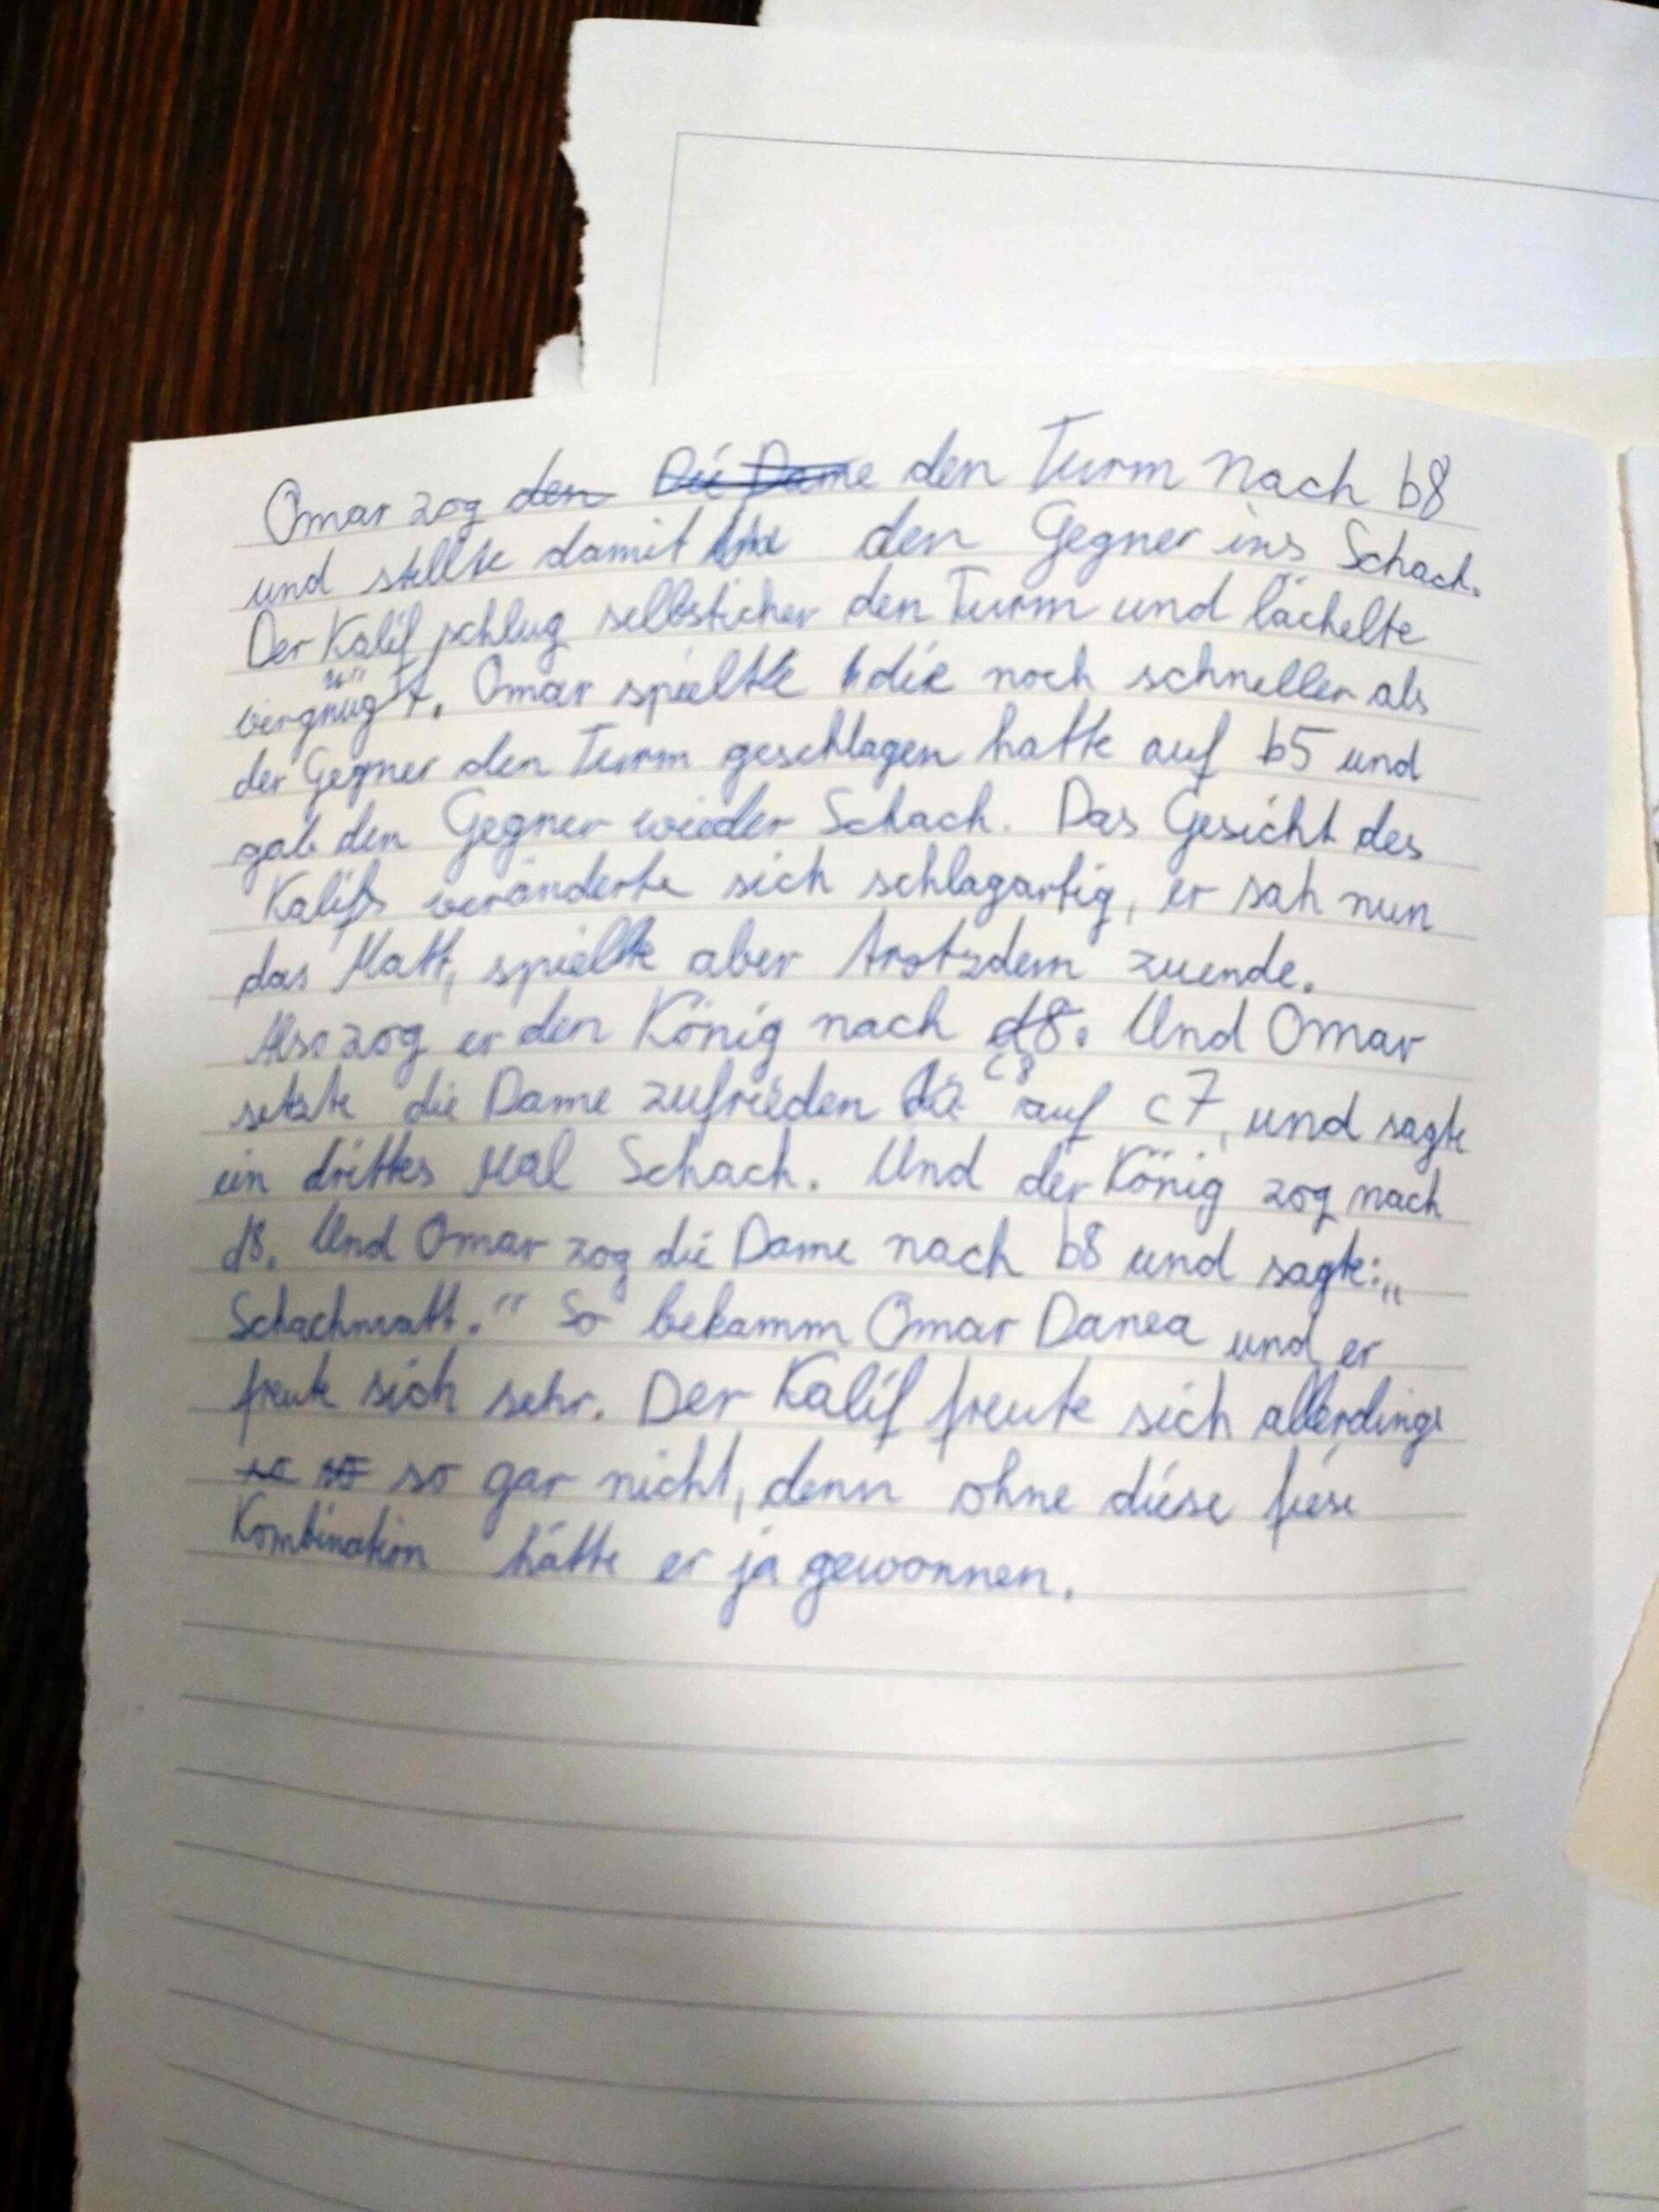 Omar zog den Die Dame den Turm nach b8
und stellte damit den Gegner ins Schach.
Der Kalif schlug selbsticher den Turm und lächelte
vergnügt. Omar spielte die noch schneller als
der Gegner den Turm geschlagen hatte auf b5 und
gab den Gegner wieder Schach. Das Gesicht des
Kalifs veränderte sich schlagartig, er sah nun
das Matt, spielte aber trotzdem zuende.
Also zog er den König nach d8. Und Omar
c8
setzte die Dame zufrieden auf c7, und sagte
ein drittes Mal Schach. Und der König zog nach
d8. Und Omar zog die Dame nach b8 und sagte: „
Schachmatt.“ So bekamm Omar Danea und er
freute sich sehr. Der Kalif freute sich allerdings
so so so gar nicht, denn ohne diese fiese
Kombination hätte er ja gewonnen.